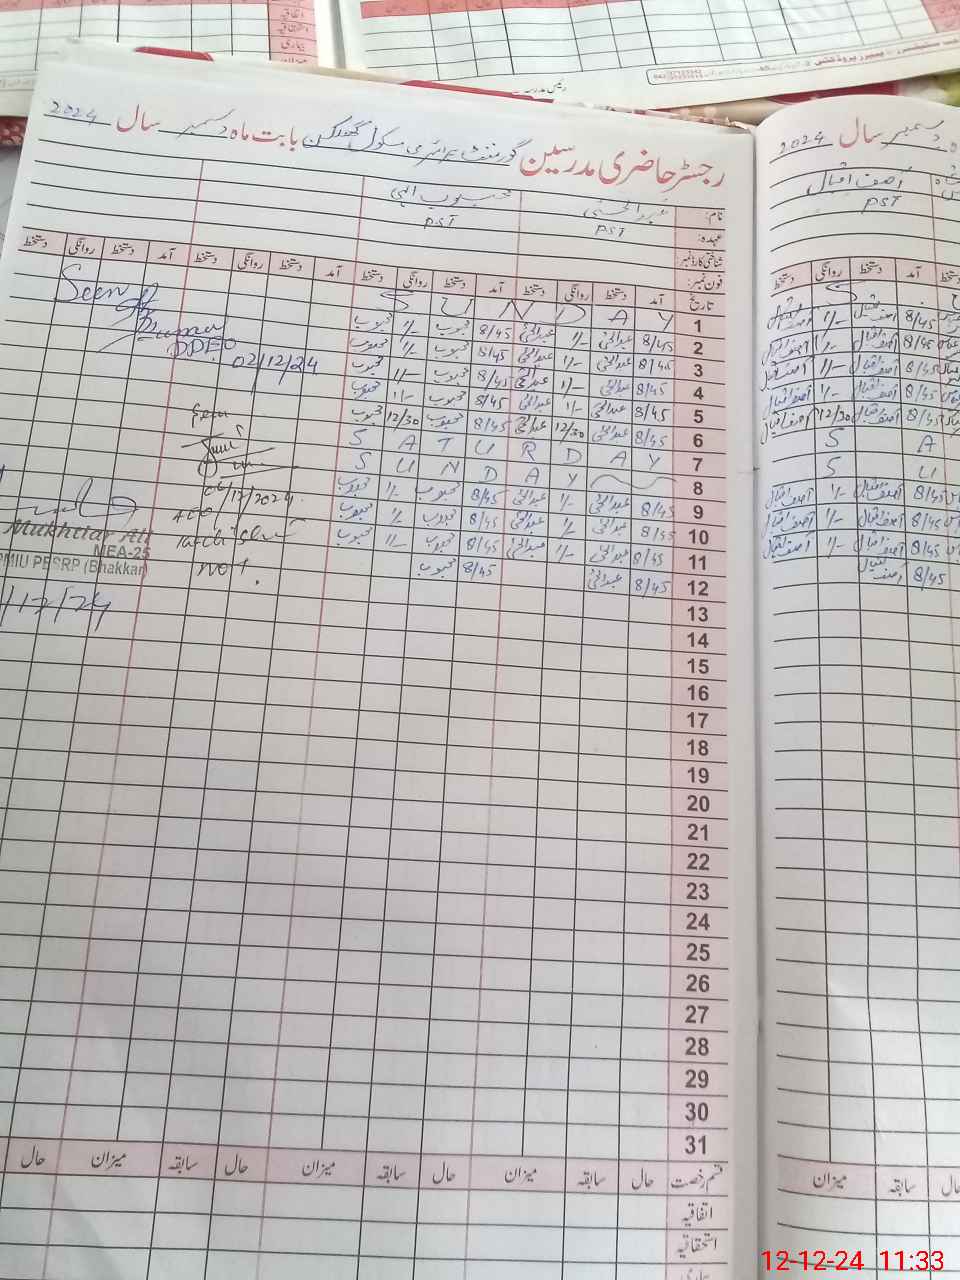 رجسٹر حاضری مدرسین گورنمنٹ پرائمری سکول بابت ماہ دسمبر سال 2024
نام: عبدالحئی محبوب الہی
عہدہ: PST PST
شناختی کارڈ نمبر:
فون نمبر:
تاریخ آمد دستخط روانگی دستخط آمد دستخط روانگی دستخط آمد دستخط روانگی دستخط آمد دستخط روانگی دستخط
1 S U N D A Y
2 8/45 عبدالحئی 1/- عبدالحئی 8/45 محبوب 1/- محبوب
3 8/45 عبدالحئی 1/- عبدالحئی 8/45 محبوب 1/- محبوب
4 8/45 عبدالحئی 1/- عبدالحئی 8/45 محبوب 1/- محبوب
5 8/45 عبدالحئی 1/- عبدالحئی 8/45 محبوب 1/- محبوب
6 8/45 عبدالحئی 12/30 عبدالحئی 8/45 محبوب 12/30 محبوب
7 S A T U R D A Y
8 S U N D A Y
9 8/45 عبدالحئی 1/- عبدالحئی 8/45 محبوب 1/- محبوب
10 8/45 عبدالحئی 1/- عبدالحئی 8/45 محبوب 1/- محبوب
11 8/45 عبدالحئی 1/- عبدالحئی 8/45 محبوب 1/- محبوب
12 8/45 عبدالحئی 8/45 محبوب
13
14
15
16
17
18
19
20
21
22
23
24
25
26
27
28
29
30
31
قسم رخصت حال سابقہ میزان حال سابقہ میزان حال سابقہ میزان حال
اتفاقیہ
استحقاقیہ
بیماری
Seen
DDEO
02/12/24
Seen
06/12/2024
AEO
Mukhtiar Ali
MEA-25
PMIU PESRP (Bhakkar)
/12/24
دسمبر سال 2024
آصف اقبال
PST
آمد دستخط روانگی دستخط
S
8/45 آصف اقبال 1/- آصف اقبال
8/45 آصف اقبال 1/- آصف اقبال
8/45 آصف اقبال 1/- آصف اقبال
8/45 آصف اقبال 1/- آصف اقبال
8/45 آصف اقبال 12/30 آصف اقبال
S A
S U
8/45 آصف اقبال 1/- آصف اقبال
8/45 آصف اقبال 1/- آصف اقبال
8/45 آصف اقبال 1/- آصف اقبال
8/45 آصف اقبال
حال سابقہ میزان
رئیس مدرسہ
اتفاقیہ
استحقاقیہ
بیماری
میزان
12-12-24 11:33